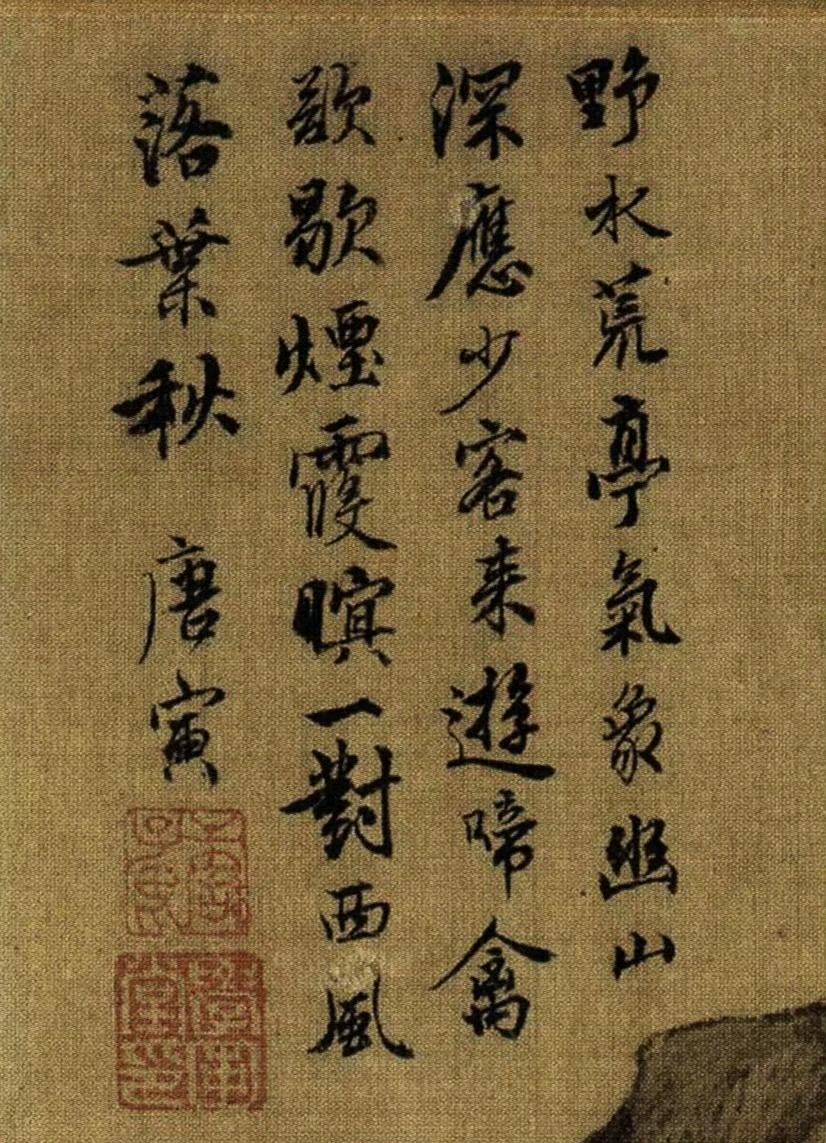 野水荒亭氣象幽山
深應少客来遊啼禽
歇煙霞暝一對西風
落葉秋 唐寅
學圃堂印